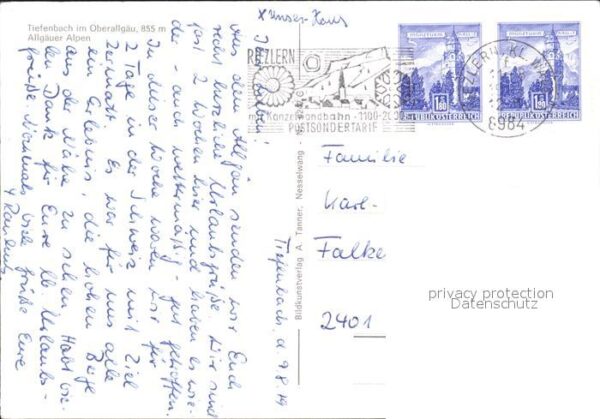 Tiefenbach im Oberallgäu, 855 m
Allgäuer Alpen
x Unser Haus
RIEZLERN
mit Kanzelwandbahn · 1100-20
POSTSONDERTARIF
6984
REPUBLIK ÖSTERREICH
REPUBLIK ÖSTERREICH
Tiefenbach, d. 9.8.79
Aus dem Allgäu senden wir Euch
recht herzliche Urlaubsgrüße. Wir sind
fast 2 Wochen hier und haben es wie-
der - auch wettermäßig - gut getroffen.
In dieser Woche waren wir für
2 Tage in der Schweiz mit Ziel
Zermatt. Es war für uns alle
ein Erlebnis, die hohen Berge
aus der Nähe zu sehen. Habt vie-
len Dank für Eure lb. Urlaubs-
grüße. Nochmals viele Grüße Eure
Bildkunstverlag A. Tanner, Nesselwang
Familie
Karl-
Falke
2401
privacy protection
Datenschutz